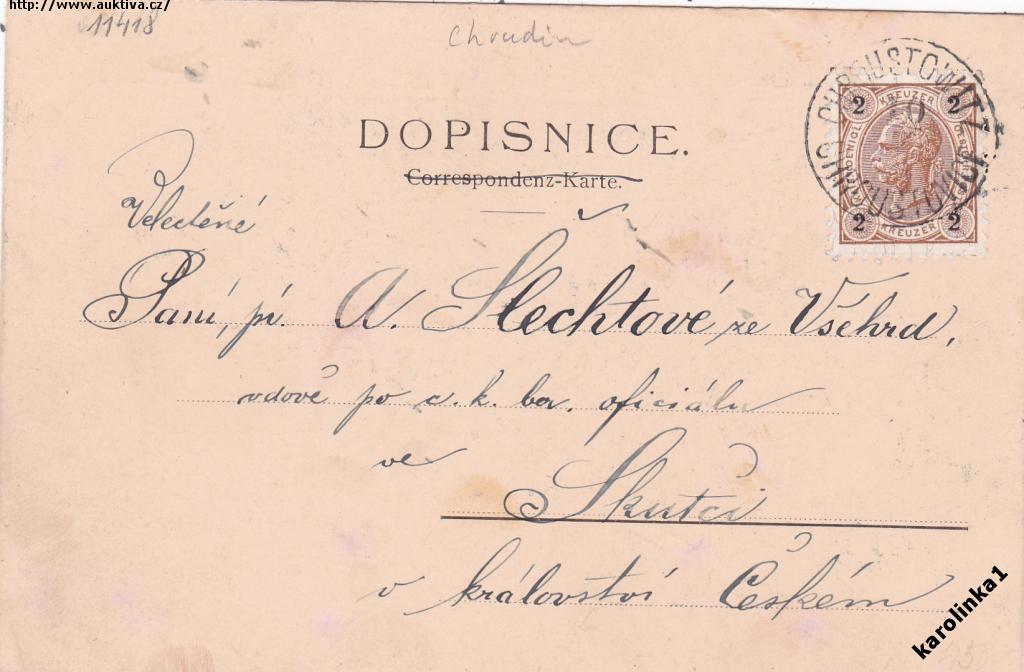 http://www.auktiva.cz/
11418
Chrudim
DOPISNICE.
Correspondenz-Karte.
2 KREUZER 2
2 KREUZER 2
Velectěné
Paní, pí. A. Šlechtové ze Všehrd,
vdově po c. k. ber. oficiálu
ve
Skutči
v království Českém
karolinka1